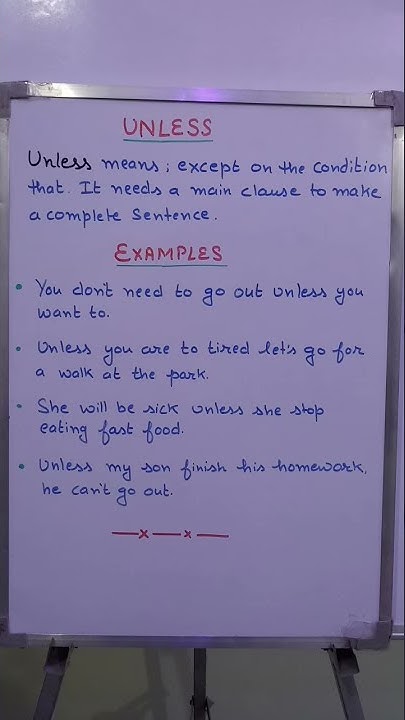 UNLESS
Unless means; except on the condition
that. It needs a main clause to make
a complete sentence.
EXAMPLES
• You don't need to go out unless you
want to.
• Unless you are to tired let's go for
a walk at the park.
• She will be sick unless she stop
eating fast food.
• Unless my son finish his homework,
he can't go out.
—x—x—